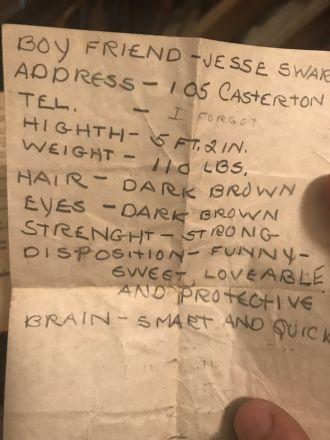 BOY FRIEND - JESSE SWAR
ADDRESS - 105 CASTERTON
TEL. - I FORGOT
HIGHTH - 5 FT. 2 IN.
WEIGHT - 110 LBS.
HAIR - DARK BROWN
EYES - DARK BROWN
STRENGHT - STRONG
DISPOSITION - FUNNY -
SWEET, LOVEABLE
AND PROTECTIVE
BRAIN - SMART AND QUICK